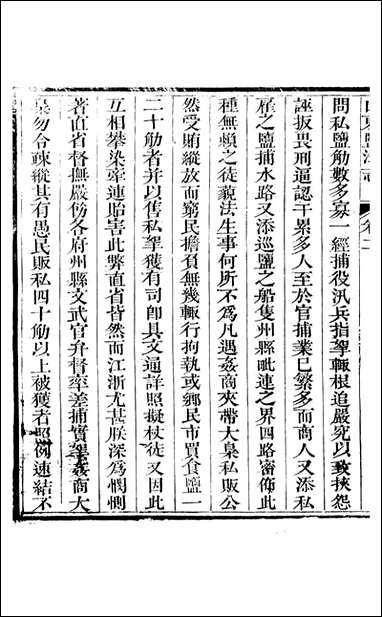 山東鹽法志 卷二
問私鹽觔數多寡一經捕役汛兵指拏輒根追嚴究以致挾怨
誣扳畏刑逼認干累多人至於官捕業已繁多而商人又添私
雇之鹽捕水路又添巡鹽之船隻州縣毗連之界四路密佈此
種無賴之徒藐法生事何所不為凡遇姦商夾帶大梟私販公
然受賄縱放而窮民擔負無幾輒行拘執或鄉民市買食鹽一
二十觔者并以售私拏獲有司即具文通詳照擬杖徒又因此
互相攀染牽連貽害此弊直省皆然而江浙尤甚朕深為憫惻
著直省督撫嚴飭各府州縣文武官弁督率差捕實拏姦商大
梟勿令疎縱其有愚民販私四十觔以上被獲者照例速結不